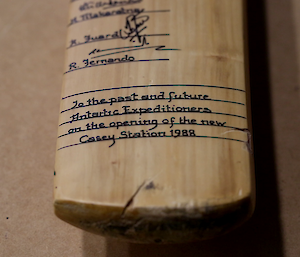 R. Fernando
To the past and future
Antartic Expeditioners
on the opening of the new
Casey Station 1988